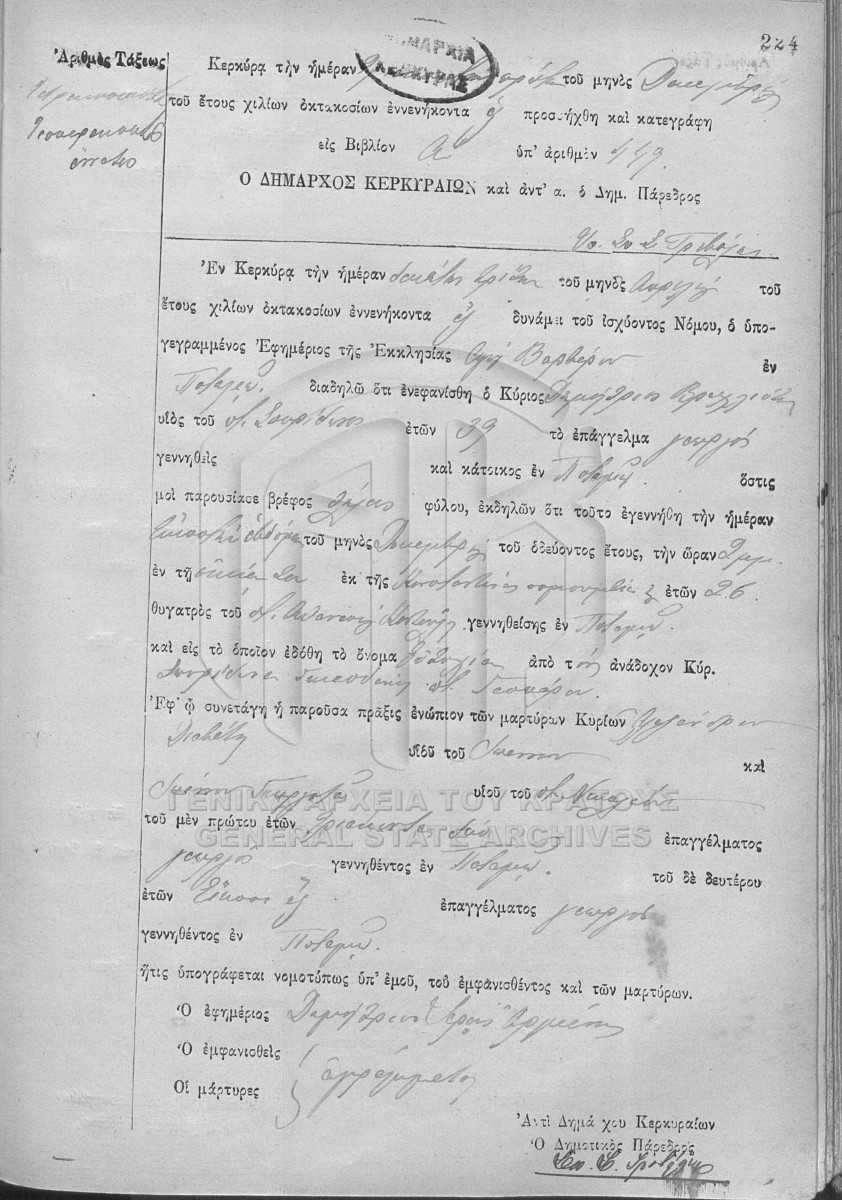 224
ΔΗΜΑΡΧΙΑ
ΚΕΡΚΥΡΑΣ
Ἀριθμὸς Τάξεως
Τεσσαρακοστὸς
ἔννατος
Κερκύρᾳ τὴν ἡμέραν τοῦ μηνὸς Δεκεμβρίου
τοῦ ἔτους χιλίων ὀκτακοσίων ἐννενήκοντα ἓξ προσήχθη καὶ κατεγράφη
εἰς Βιβλίον Α ὑπ' ἀριθμὸν 449.
Ο ΔΗΜΑΡΧΟΣ ΚΕΡΚΥΡΑΙΩΝ καὶ ἀντ' α. ὁ Δημ. Πάρεδρος
Ἐν Κερκύρᾳ τὴν ἡμέραν δεκάτην τρίτην τοῦ μηνὸς Ἀπριλίου τοῦ
ἔτους χιλίων ὀκτακοσίων ἐννενήκοντα ἓξ δυνάμει τοῦ ἰσχύοντος Νόμου, ὁ ὑπο-
γεγραμμένος Ἐφημέριος τῆς Ἐκκλησίας Ἁγίας Βαρβάρας ἐν
Ποταμῷ. διαδηλῶ ὅτι ἐνεφανίσθη ὁ Κύριος Δημήτριος
υἱὸς τοῦ π. Σπυρίδωνος ἐτῶν 39 τὸ ἐπάγγελμα γεωργὸς
γεννηθεὶς καὶ κάτοικος ἐν Ποταμῷ. ὅστις
μοὶ παρουσίασε βρέφος θήλεος φύλου, ἐκδηλῶν ὅτι τοῦτο ἐγεννήθη τὴν ἡμέραν
Εἰκοστὴ ἑβδόμη τοῦ μηνὸς Δεκεμβρίου τοῦ ὁδεύοντος ἔτους, τὴν ὥραν 2 μμ.
ἐν τῇ οἰκίᾳ του ἐκ τῆς Κωνσταντίνας ἐτῶν 26
θυγατρὸς τοῦ π. Ἀθανασίου γεννηθείσης ἐν Ποταμῷ.
καὶ εἰς τὸ ὁποῖον ἐδόθη τὸ ὄνομα Εὐθυμία ἀπὸ τὸν ἀνάδοχον Κύρ.
Σπυρίδωνα
Ἐφ' ᾧ συνετάγη ἡ παροῦσα πρᾶξις ἐνώπιον τῶν μαρτύρων Κυρίων Ἀλεξάνδρου
υἱοῦ τοῦ Ἰωάννου καὶ
Ἰωάννου υἱοῦ τοῦ π. Νικολάου
ΓΕΝΙΚΑ ΑΡΧΕΙΑ ΤΟΥ ΚΡΑΤΟΥΣ
GENERAL STATE ARCHIVES
τοῦ μὲν πρώτου ἐτῶν Τριάκοντα δύο ἐπαγγέλματος
γεωργὸς γεννηθέντος ἐν Ποταμῷ. τοῦ δὲ δευτέρου
ἐτῶν Εἴκοσι ἓξ ἐπαγγέλματος γεωργὸς
γεννηθέντος ἐν Ποταμῷ.
ἥτις ὑπογράφεται νομοτύπως ὑπ' ἐμοῦ, τοῦ ἐμφανισθέντος καὶ τῶν μαρτύρων.
Ὁ ἐφημέριος Δημήτριος Ἱερεὺς
Ὁ ἐμφανισθεὶς
Οἱ μάρτυρες ἀγράμματοι
Ἀντὶ Δημάρχου Κερκυραίων
Ὁ Δημοτικὸς Πάρεδρος